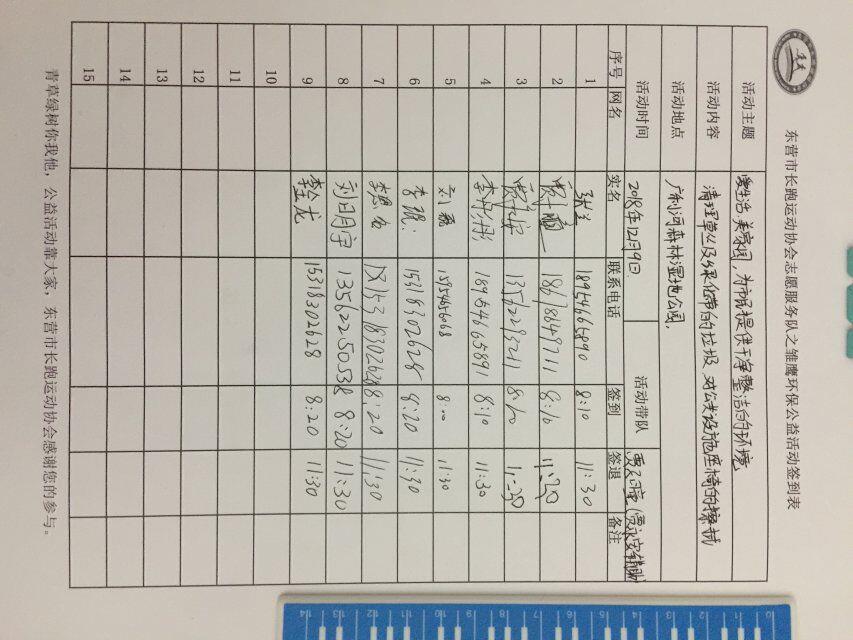 东营市长跑运动协会志愿服务队之雏鹰环保公益活动签到表
活动主题 爱生活 美家园,为市民提供干净整洁的环境
活动内容 清理草丛及绿化带的垃圾 对公共设施座椅的擦拭
活动地点 广利河森林湿地公园.
活动时间 2018年12月9日 活动带队
序号 网名 实名 联系电话 签到 签退 备注
1 18954665890 8:10 11:30
2 18678649711 8:10 11:30
3 13562293211 8:10 11:30
4 18954665891 8:10 11:30
5 刘 15954656068 8:00 11:30
6 李 15318302628 8:20 11:30
7 李 15318302628 8:20 11:30
8 刘明宇 13562250538 8:20 11:30
9 李金龙 15318302628 8:20 11:30
10
11
12
13
14
15
青草绿树你我他,公益活动靠大家,东营市长跑运动协会感谢您的参与。
0 1 2 3 4 5 6 7 8 9 10 11 12 13 14